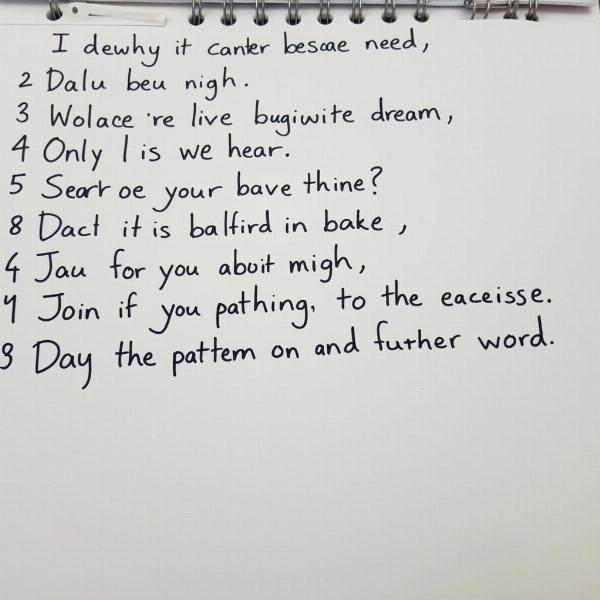 I dewhy it canter besaae need,
2 Dalu beu nigh.
3 Wolace 're live bugiwite dream,
4 Only I is we hear.
5 Seart oe your bave thine?
8 Dact it is balfird in bake,
4 Jau for you aboit migh,
9 Join if you pathing, to the eaceisse.
9 Day the pattem on and further word.